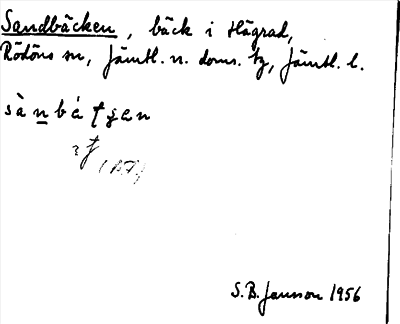 Sandbäcken, bäck i Hägrad,
Rödöns sn, Jämtl. n. doms. tg, Jämtl. l.
S.B. Jansson 1956